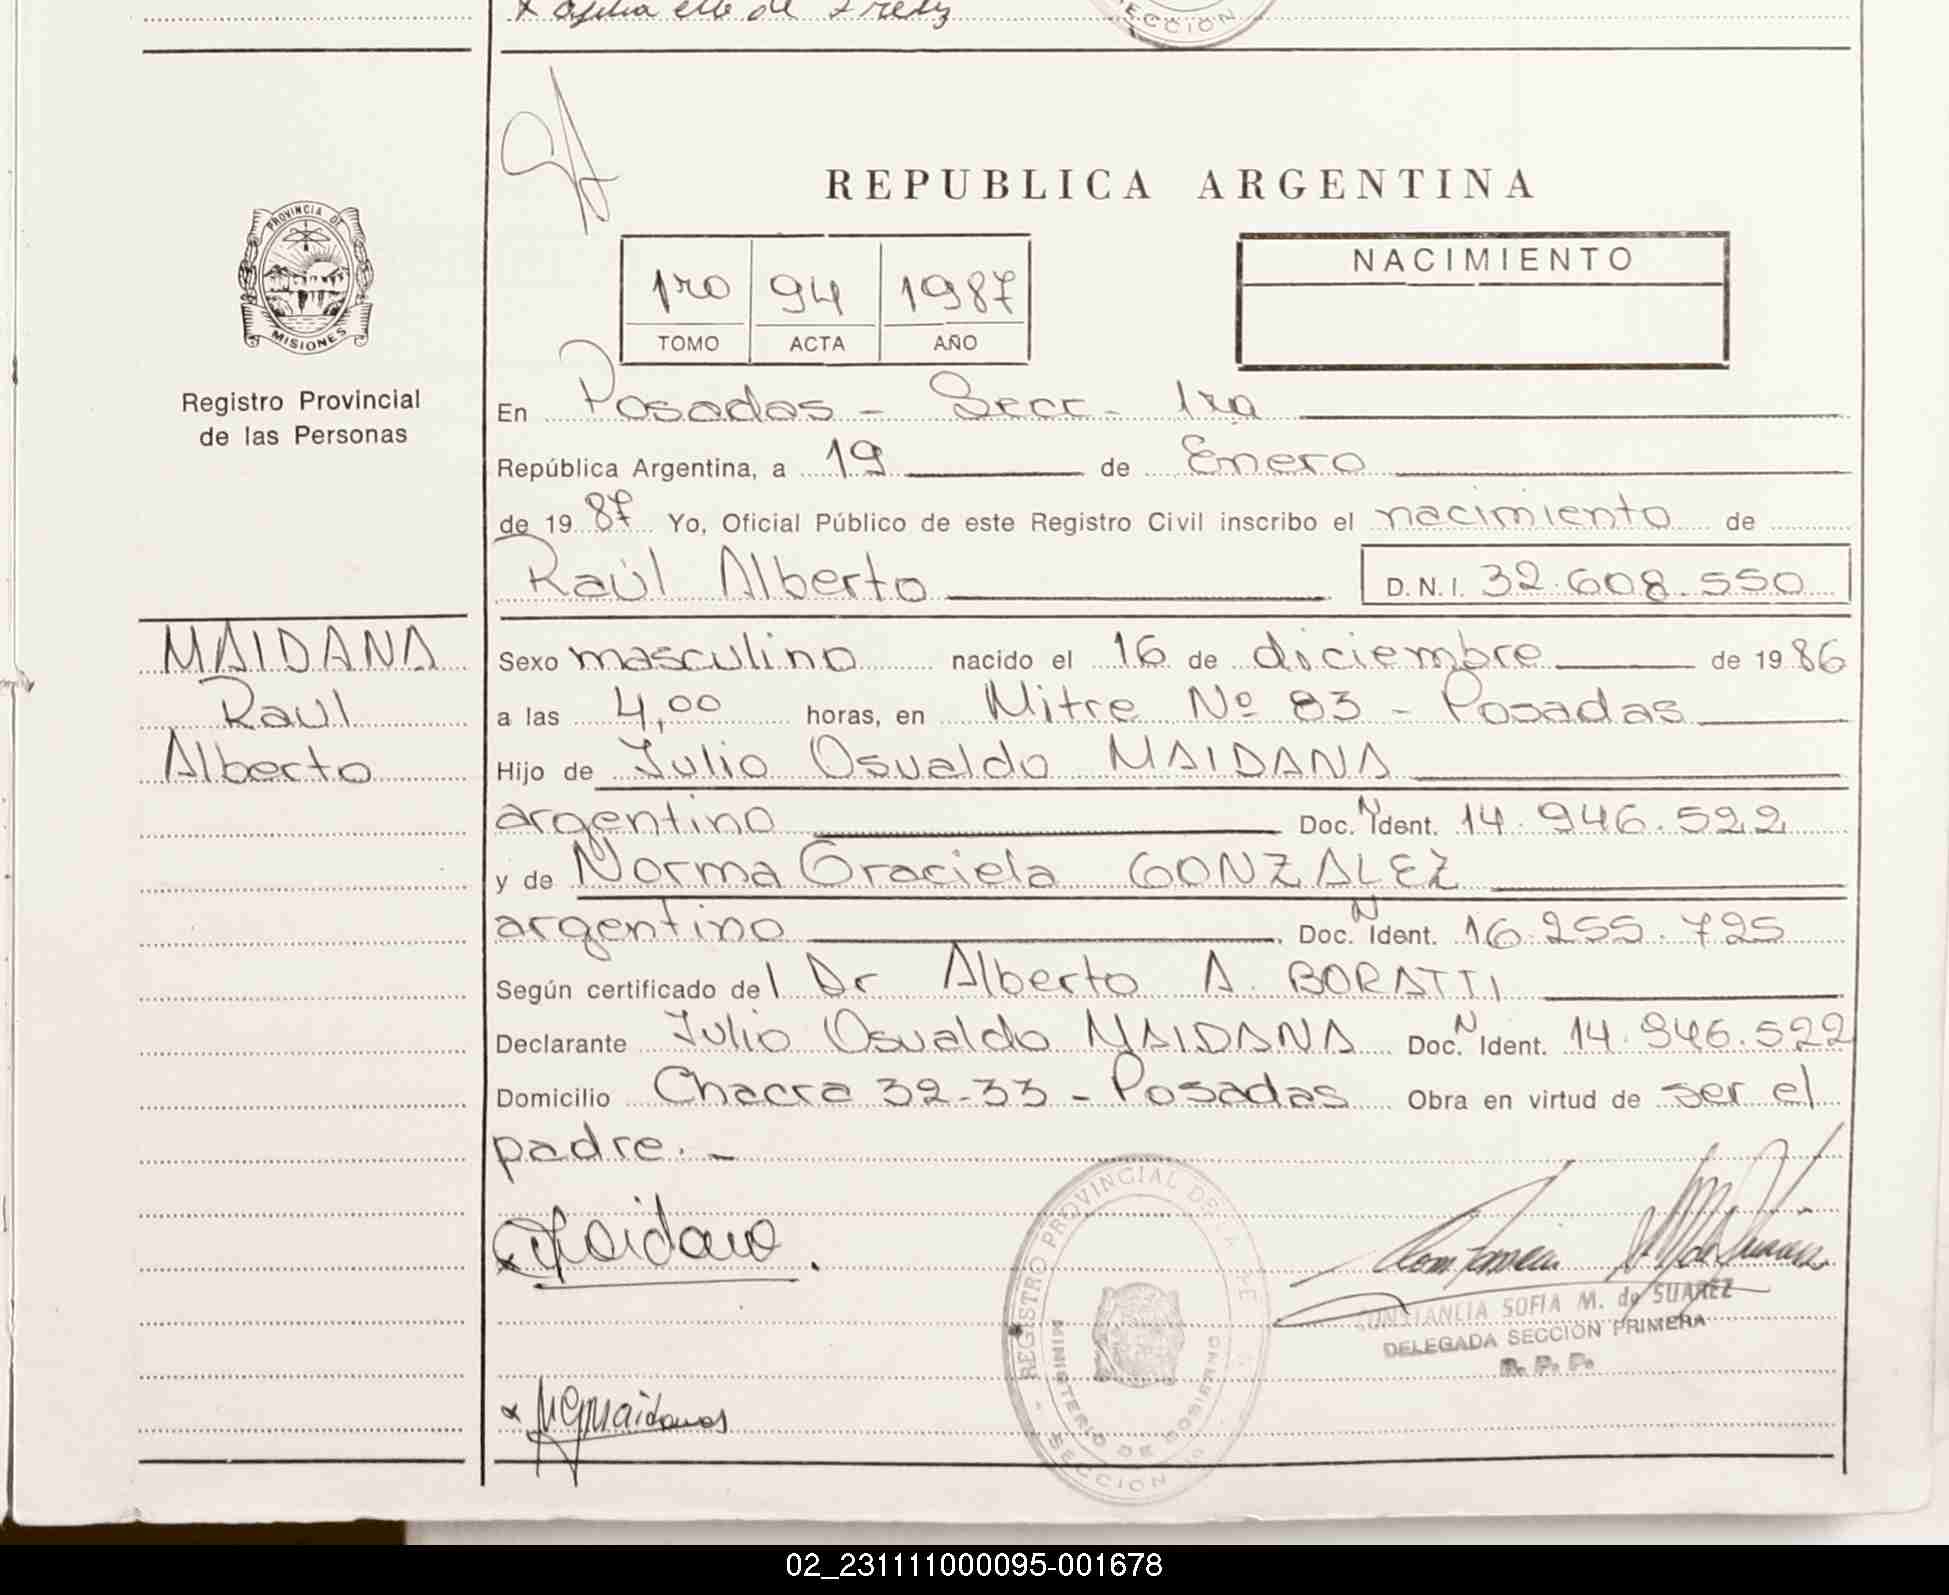 PROVINCIA DE
MISIONES
Registro Provincial
de las Personas
MAIDANA
Raul
Alberto
SECCIÓN
REPUBLICA ARGENTINA
1ro 94 1987
TOMO ACTA AÑO
NACIMIENTO
En Posadas - Secc. 1ra
República Argentina, a 19 de Enero
de 1987 Yo, Oficial Público de este Registro Civil inscribo el nacimiento de
Raúl Alberto D.N.I. 32.608.550
Sexo masculino nacido el 16 de diciembre de 1986
a las 4,00 horas, en Mitre Nº 83 - Posadas
Hijo de Julio Osvaldo MAIDANA
argentino Doc. N Ident. 14.946.522
y de Norma Graciela GONZALEZ
argentino Doc. N Ident. 16.255.725
Según certificado del Dr Alberto A. BORATTI
Declarante Julio Osvaldo MAIDANA Doc. N Ident. 14.946.522
Domicilio Chacra 32-33 - Posadas Obra en virtud de ser el
padre. -
REGISTRO PROVINCIAL DE LAS
MINISTERIO DE GOBIERNO
SECCION
CONSTANCIA SOFIA M. de SUAREZ
DELEGADA SECCION PRIMERA
R. P. P.
02_231111000095-001678